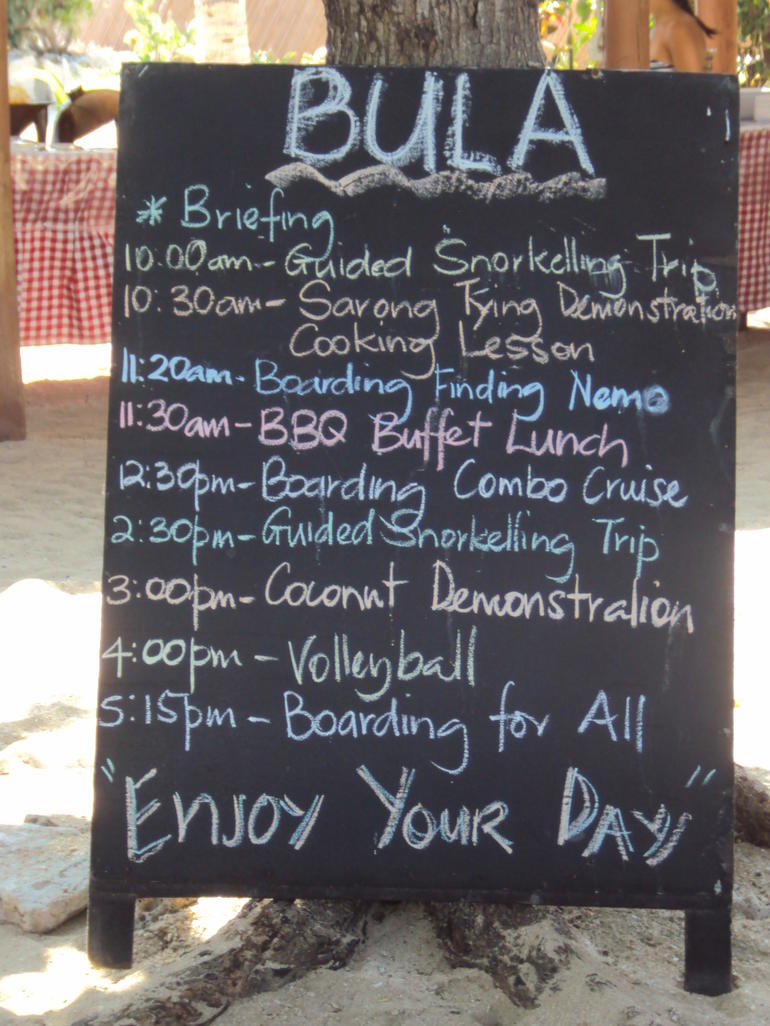 BULA
* Briefing
10:00am - Guided Snorkelling Trip
10:30am - Sarong Tying Demonstration
Cooking Lesson
11:20am - Boarding Finding Nemo
11:30am - BBQ Buffet Lunch
12:30pm - Boarding Combo Cruise
2:30pm - Guided Snorkelling Trip
3:00pm - Coconut Demonstration
4:00pm - Volleyball
5:15pm - Boarding for All
"Enjoy Your Day"